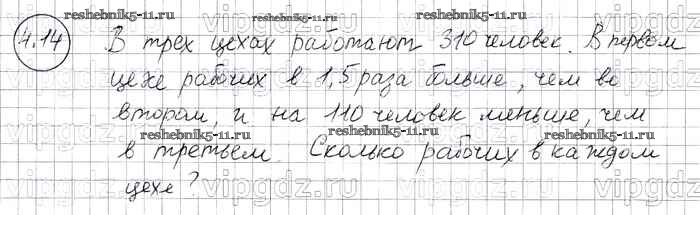 reshebnik5-11.ru reshebnik5-11.ru
4.14 В трех цехах работают 310 человек. В первом
цехе рабочих в 1,5 раза больше, чем во
втором, и на 110 человек меньше, чем
reshebnik5-11.ru reshebnik5-11.ru
в третьем. Сколько рабочих в каждом
цехе?
vipgdz.ru vipgdz.ru